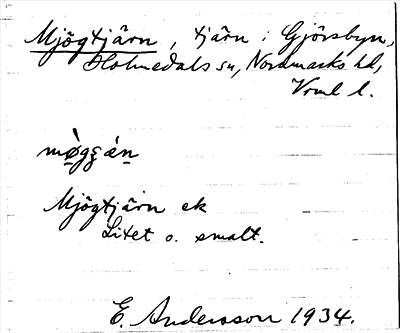 Mjögtjärn, tjärn i Gjörsbyn,
Holmedals sn, Nordmarks hd,
Vrml l.
Mjögtjärn ek
Litet o. smalt.
E. Andersson 1934.